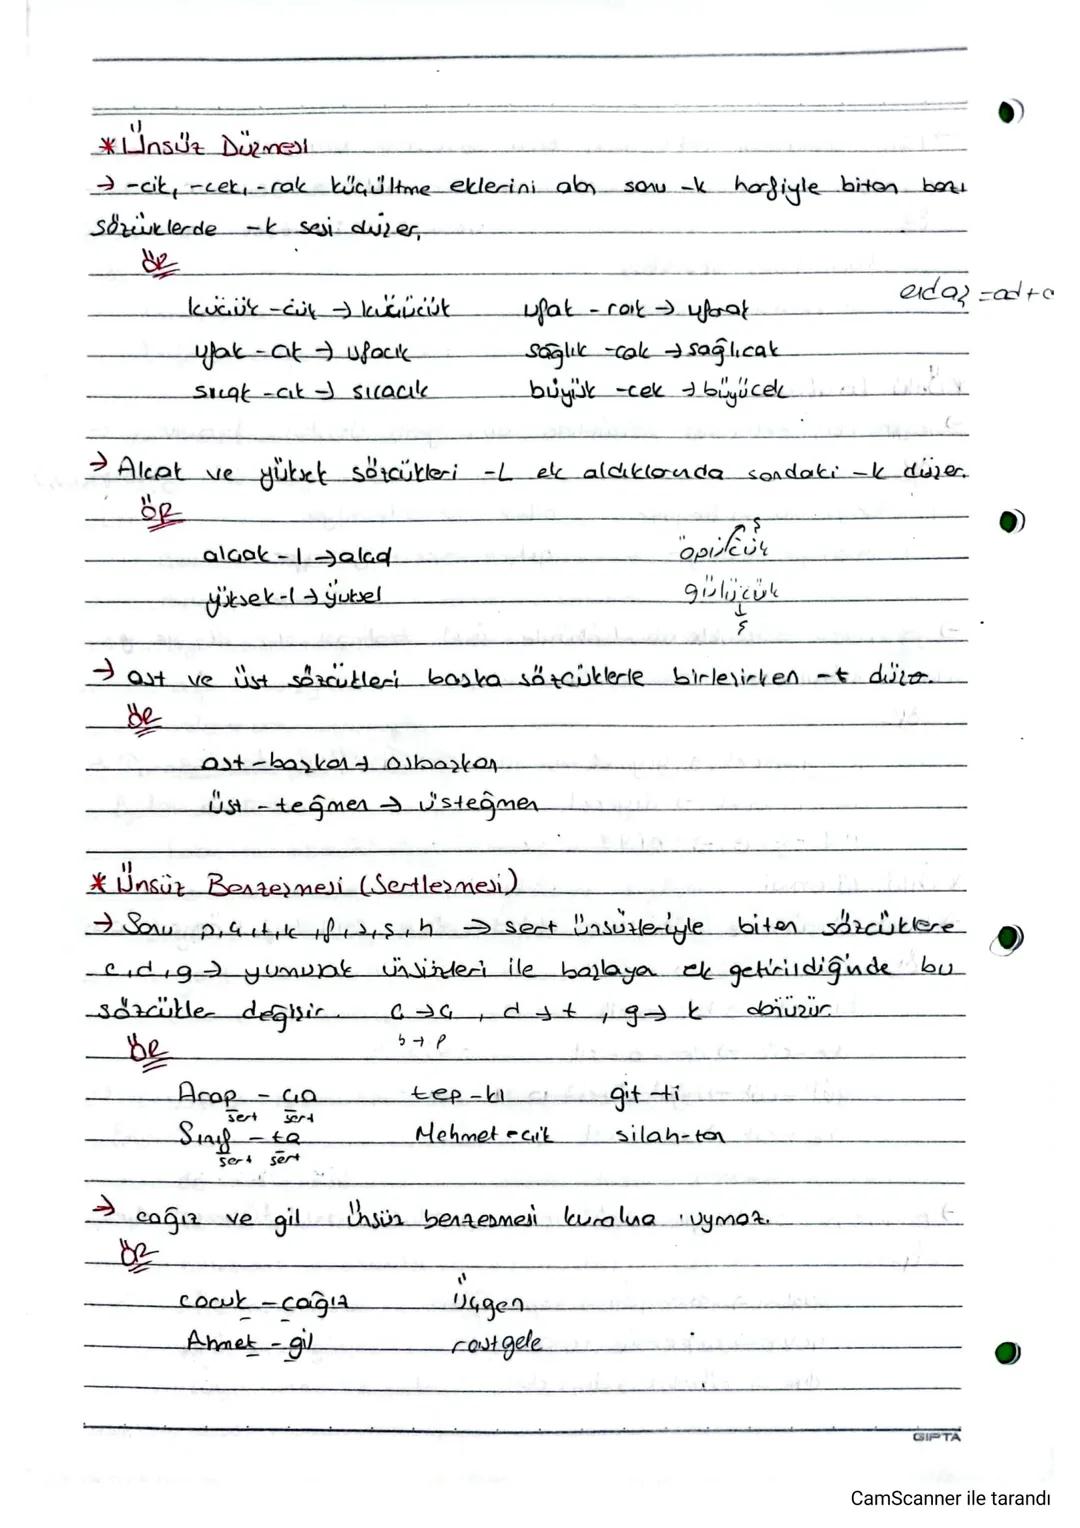 * Ünsüz Düşmesi
→ -cik, -cek, -rak küçültme eklerini alan sonu -k harfiyle biten bazı
sözcüklerde -k sesi düşer.
ÖR
küçük -cük → küçücük ufak - rak → ufarak
adaş = ad+
ufak - cık → ufacık sağlık -cak → sağlıcak
sıcak -cık → sıcacık büyük -cek → büyücek
→ Alçak ve yüksek sözcükleri -L ek aldıklarında sondaki -k düşer.
ÖR
alçak - l → alçal öpücük
yüksek - l → yüksel gülücük
→ ast ve üst sözcükleri başka sözcüklerle birleşirken -t düşer.
ÖR
ast - başkan → asbaşkan
üst - teğmen → üsteğmen
* Ünsüz Benzeşmesi (Sertleşmesi)
→ Sonu p, ç, t, k, f, s, ş, h → sert ünsüzleriyle biten sözcüklere
c, d, g → yumuşak ünsüzleri ile başlayan ek getirildiğinde bu
sözcükler değişir. c → ç , d → t , g → k dönüşür.
b → p
ÖR
Arap - ça tep - ki git - ti
sert sert
Sınıf - ta Mehmet - çik silah - tan
sert sert
→ cağız ve gil ünsüz benzeşmesi kuralına uymaz.
ÖR
çocuk - cağız üçgen
Ahmet - gil rastgele
GIPTA
CamScanner ile tarandı